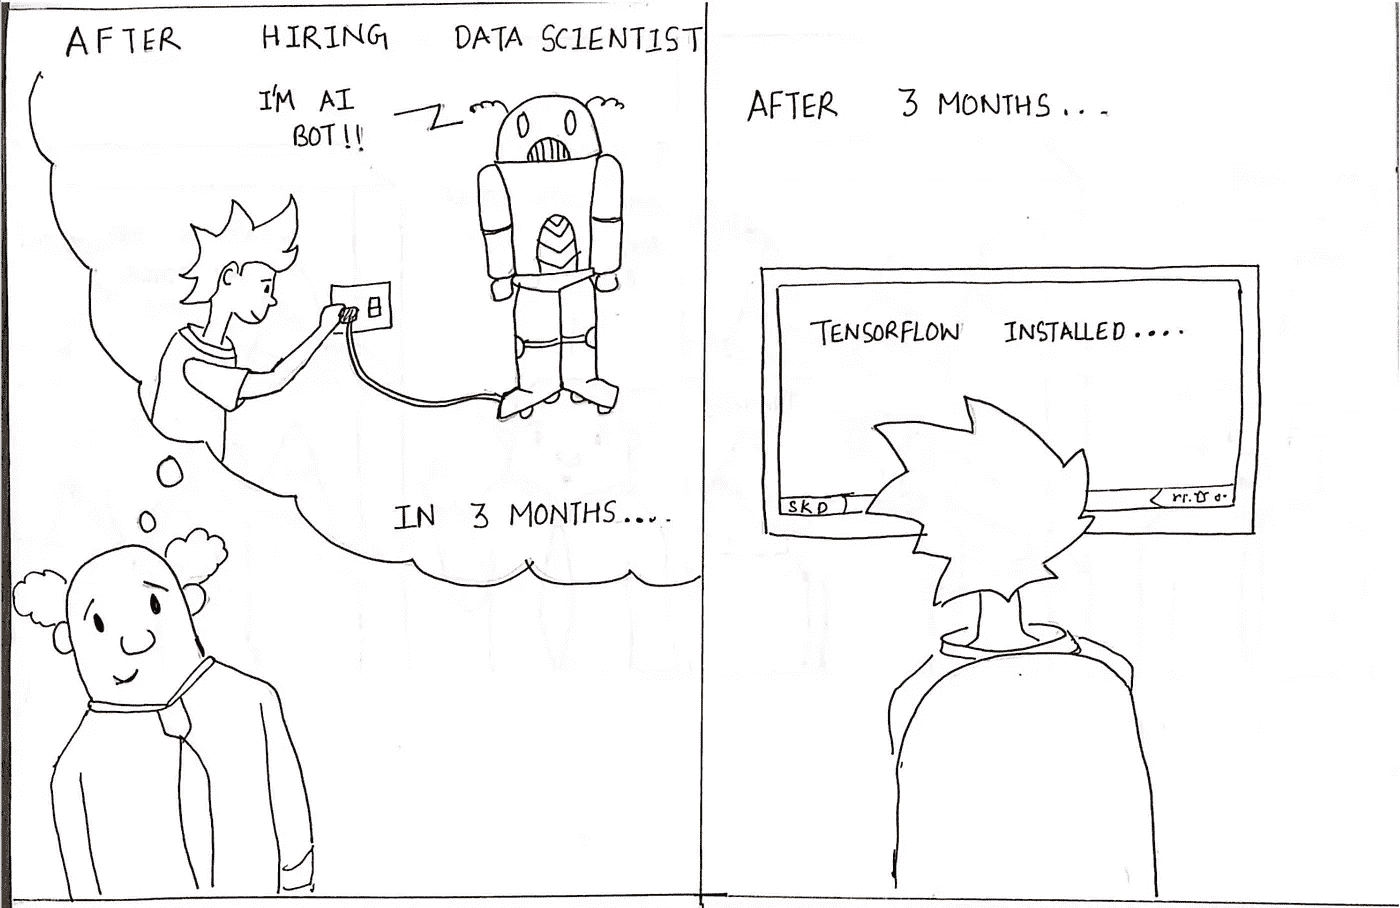 AFTER HIRING DATA SCIENTIST
I'M AI
BOT!!
IN 3 MONTHS....
AFTER 3 MONTHS...
TENSORFLOW INSTALLED....
SKD